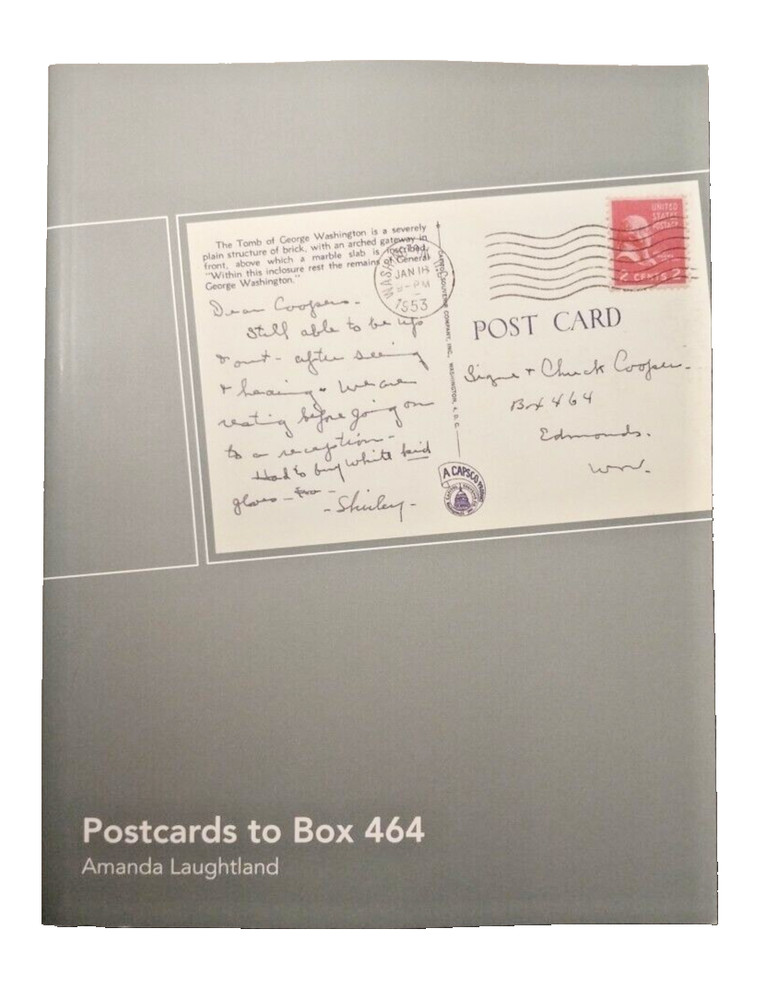 The Tomb of George Washington is a severely
plain structure of brick, with an arched gateway in
front, above which a marble slab is inscribed,
"Within this inclosure rest the remains of General
George Washington."
Dear Coopers -
Still able to be up
& out - after seeing
& hearing. We are
resting before going on
to a reception -
Had to buy white kid
gloves -
- Shirley -
WASHINGTON
JAN 18
PM
1953
CAPSCO SOUVENIR COMPANY, INC., WASHINGTON, D. C.
A CAPSCO
UNITED
STATES
POSTAGE
2 CENTS 2
POST CARD
Signe & Chuck Cooper.
Box 464
Edmonds.
Wn.
Postcards to Box 464
Amanda Laughtland